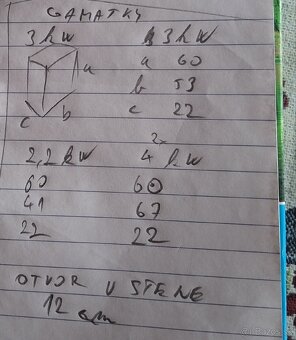 GAMATKY
3 kW 3 kW
a a 60
b b 53
c c 22
2x
2,2 kW 4 kW
60 60
41 67
22 22
OTVOR V STENE
12 cm